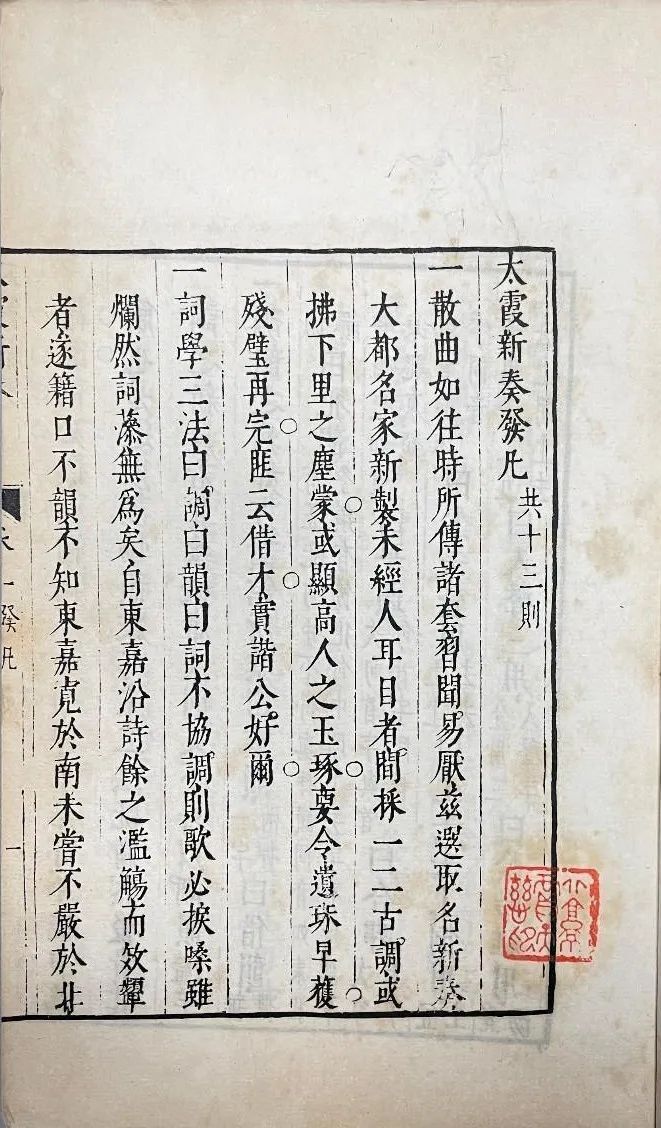 太霞新奏發凡
共十三則
一散曲如往時所傳諸套習聞易厭茲選取名新奏
大都名家新製未經人耳目者間採一二古調或
拂下里之塵蒙或顯高人之玉琢要令遺珠早獲
殘璧再完匪云借才實諧公好爾
一詞學三法曰調曰韻曰詞不協調則歌必捩嗓雖
爛然詞藻無爲矣自東嘉沿詩餘之濫觴而效顰
者遂籍口不韻不知東嘉寬於南未嘗不嚴於北
發凡
一